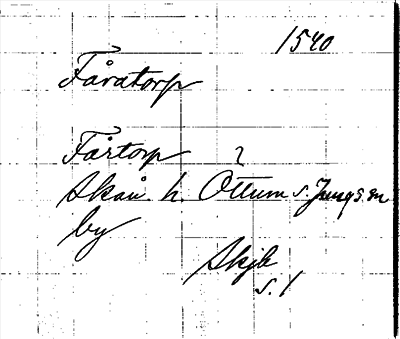 1540
Fåratorp
Fårtorp ?
Skån. h. Ottum s. Jungs. sn
by
Skjb
s. 1